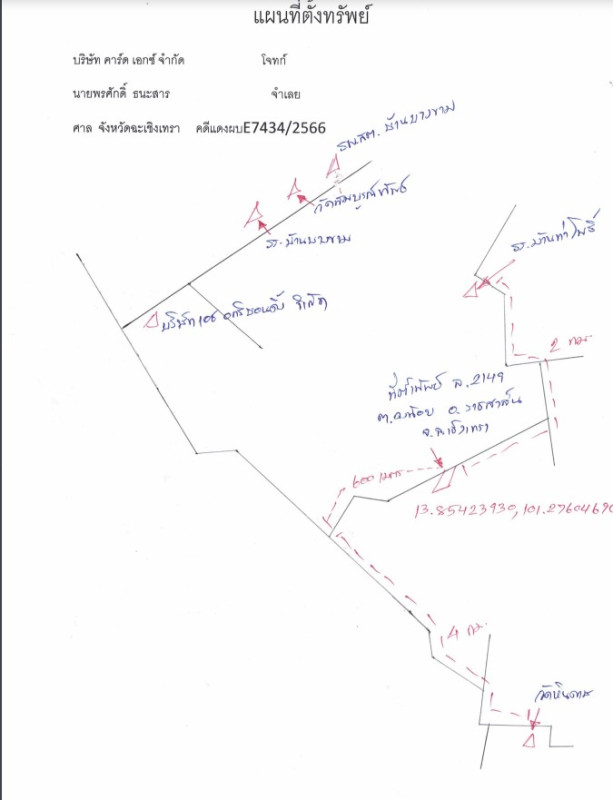 แผนที่ตั้งทรัพย์
บริษัท คาร์ด เอกซ์ จำกัด โจทก์
นายพรศักดิ์ ธนะสาร จำเลย
ศาล จังหวัดฉะเชิงเทรา คดีแดงผบE7434/2566
รพ.สต. บ้านบางขาม
วัดสมบูรณ์
รร.บ้านบางขาม
รร.บ้านท่าโพธิ์
บริษัท จำกัด
2 กม.
ที่ตั้งทรัพย์ ส.2149
อ.ราชสาส์น
จ.ฉะเชิงเทรา
600 เมตร
13.85423930,101.2760469
4 กม.
วัดหินดาษ